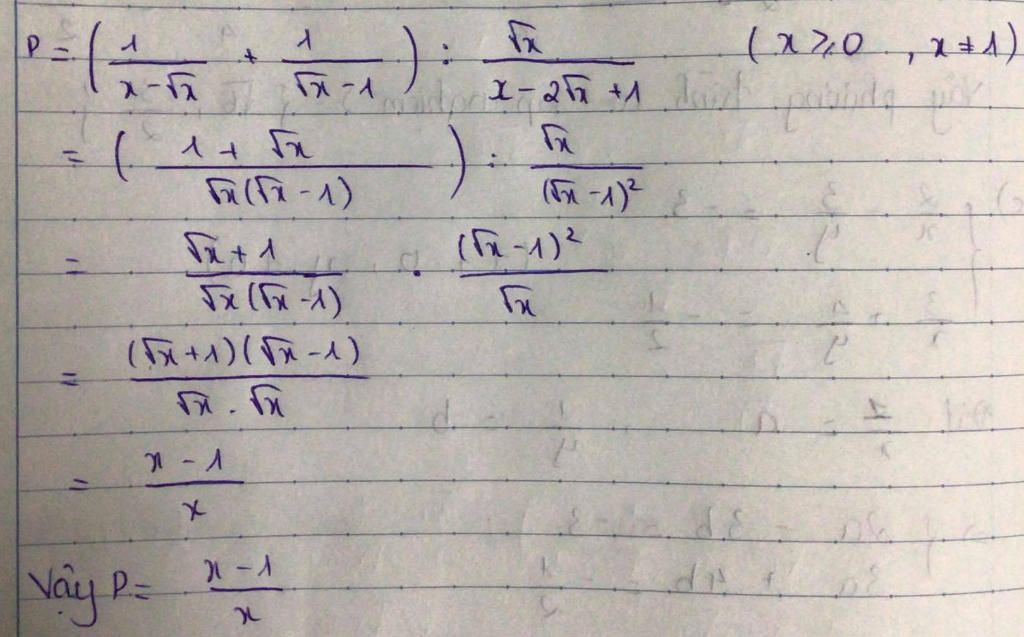 P = ( 1/(x-√x) + 1/(√x-1) ) : √x/(x-2√x+1) (x ≥ 0, x ≠ 1)
= ( (1+√x)/(√x(√x-1)) ) : √x/(√x-1)²
= (√x+1)/(√x(√x-1)) . (√x-1)²/√x
= (√x+1)(√x-1)/(√x.√x)
= (x-1)/x
Vậy P = (x-1)/x